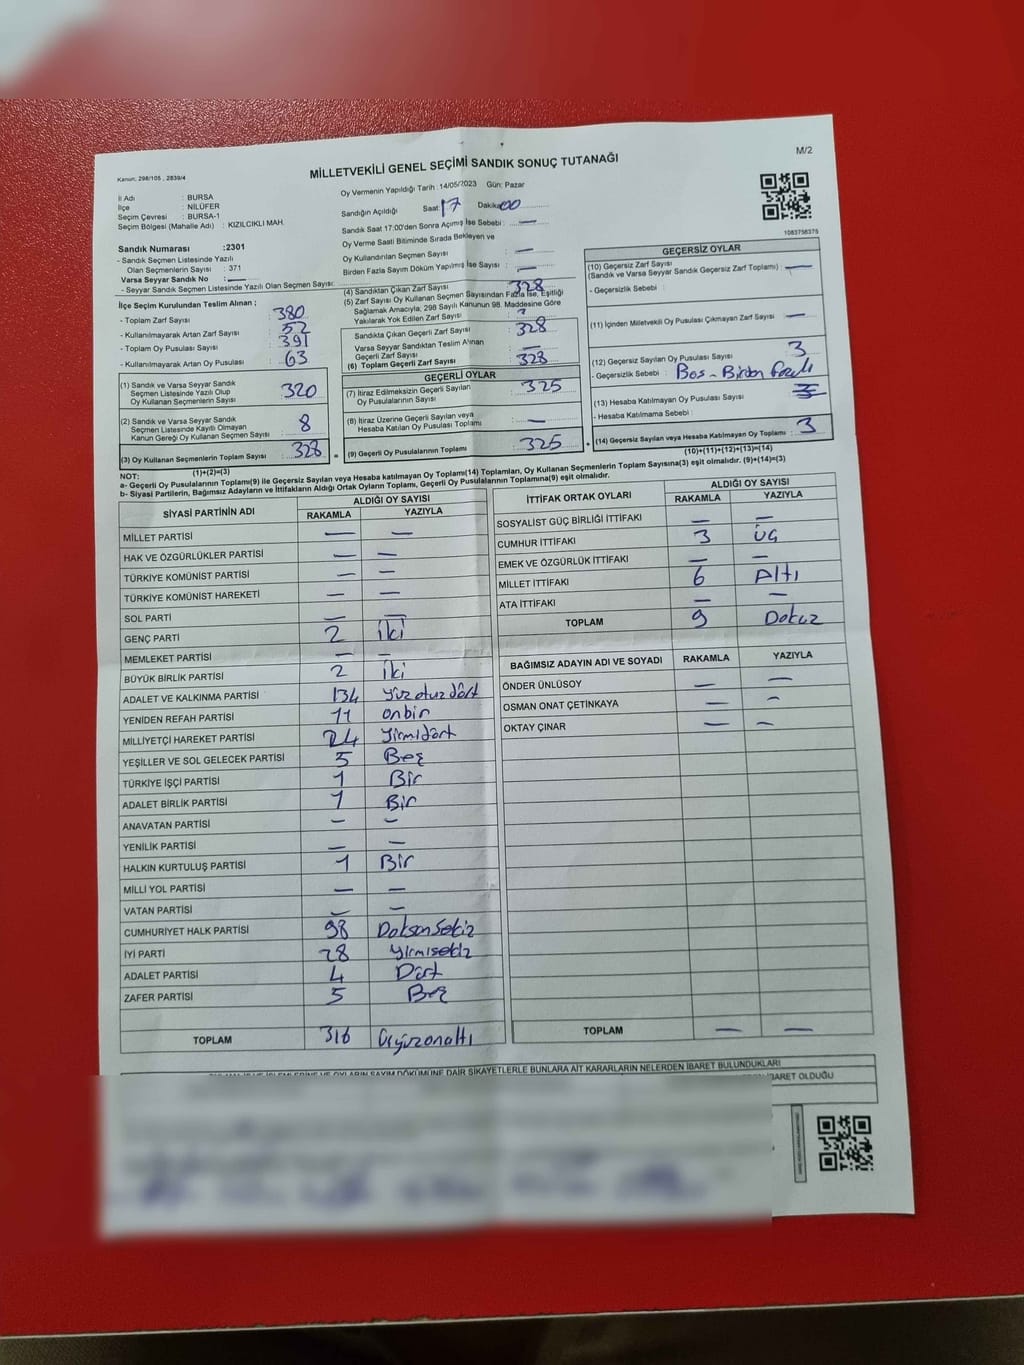 M/2
Kanun: 298/105 , 2839/4
MİLLETVEKİLİ GENEL SEÇİMİ SANDIK SONUÇ TUTANAĞI
İl Adı : BURSA
İlçe : NİLÜFER
Seçim Çevresi : BURSA-1
Seçim Bölgesi (Mahalle Adı) : KIZILCIKLI MAH.
Sandık Numarası :2301
- Sandık Seçmen Listesinde Yazılı
Olan Seçmenlerin Sayısı : 371
Varsa Seyyar Sandık No : —
- Seyyar Sandık Seçmen Listesinde Yazılı Olan Seçmen Sayısı:
Oy Vermenin Yapıldığı Tarih : 14/05/2023 Gün: Pazar
Sandığın Açıldığı Saat: 17 Dakika: 00
Sandık Saat 17:00'den Sonra Açımış İse Sebebi : —
Oy Verme Saati Bitiminde Sırada Bekleyen ve
Oy Kullandırılan Seçmen Sayısı : —
Birden Fazla Sayım Döküm Yapılmış İse Sayısı : —
1083758375
İlçe Seçim Kurulundan Teslim Alınan ;
- Toplam Zarf Sayısı : 380
- Kullanılmayarak Artan Zarf Sayısı : 52
- Toplam Oy Pusulası Sayısı : 391
- Kullanılmayarak Artan Oy Pusulası : 63
(1) Sandık ve Varsa Seyyar Sandık
Seçmen Listesinde Yazılı Olup
Oy Kullanan Seçmenlerin Sayısı : 320
(2) Sandık ve Varsa Seyyar Sandık
Seçmen Listesinde Kayıtlı Olmayan
Kanun Gereği Oy Kullanan Seçmen Sayısı : 8
(3) Oy Kullanan Seçmenlerin Toplam Sayısı : 328
(1)+(2)=(3)
(4) Sandıktan Çıkan Zarf Sayısı : 328
(5) Zarf Sayısı Oy Kullanan Seçmen Sayısından Fazla İse, Eşitliği
Sağlamak Amacıyla; 298 Sayılı Kanunun 98. Maddesine Göre
Yakılarak Yok Edilen Zarf Sayısı :
Sandıkta Çıkan Geçerli Zarf Sayısı : 328
Varsa Seyyar Sandıktan Teslim Alınan
Geçerli Zarf Sayısı : —
(6) Toplam Geçerli Zarf Sayısı : 328
GEÇERLİ OYLAR
(7) İtiraz Edilmeksizin Geçerli Sayılan
Oy Pusulalarının Sayısı : 325
(8) İtiraz Üzerine Geçerli Sayılan veya
Hesaba Katılan Oy Pusulası Toplamı : —
= (9) Geçerli Oy Pusulalarının Toplamı : 325
GEÇERSİZ OYLAR
(10) Geçersiz Zarf Sayısı
(Sandık ve Varsa Seyyar Sandık Geçersiz Zarf Toplamı) : —
- Geçersizlik Sebebi :
(11) İçinden Milletvekili Oy Pusulası Çıkmayan Zarf Sayısı : —
(12) Geçersiz Sayılan Oy Pusulası Sayısı : 3
- Geçersizlik Sebebi : Bos - Birden Fazla
(13) Hesaba Katılmayan Oy Pusulası Sayısı
- Hesaba Katılmama Sebebi :
+ (14) Geçersiz Sayılan veya Hesaba Katılmayan Oy Toplamı : 3
(10)+(11)+(12)+(13)=(14)
NOT:
a- Geçerli Oy Pusulalarının Toplamı(9) ile Geçersiz Sayılan veya Hesaba katılmayan Oy Toplamı(14) Toplamları, Oy Kullanan Seçmenlerin Toplam Sayısına(3) eşit olmalıdır. (9)+(14)=(3)
b- Siyasi Partilerin, Bağımsız Adayların ve İttifakların Aldığı Ortak Oyların Toplamı, Geçerli Oy Pusulalarının Toplamına(9) eşit olmalıdır.
SİYASİ PARTİNİN ADI ALDIĞI OY SAYISI
RAKAMLA YAZIYLA
MİLLET PARTİSİ — —
HAK VE ÖZGÜRLÜKLER PARTİSİ — —
TÜRKİYE KOMÜNİST PARTİSİ — —
TÜRKİYE KOMÜNİST HAREKETİ — —
SOL PARTİ — —
GENÇ PARTİ 2 İki
MEMLEKET PARTİSİ — —
BÜYÜK BİRLİK PARTİSİ 2 İki
ADALET VE KALKINMA PARTİSİ 134 Yüz otuz dört
YENİDEN REFAH PARTİSİ 11 onbir
MİLLİYETÇİ HAREKET PARTİSİ 24 Yirmidört
YEŞİLLER VE SOL GELECEK PARTİSİ 5 Beş
TÜRKİYE İŞÇİ PARTİSİ 1 Bir
ADALET BİRLİK PARTİSİ 1 Bir
ANAVATAN PARTİSİ — —
YENİLİK PARTİSİ — —
HALKIN KURTULUŞ PARTİSİ 1 Bir
MİLLİ YOL PARTİSİ — —
VATAN PARTİSİ — —
CUMHURİYET HALK PARTİSİ 98 Doksan Sekiz
İYİ PARTİ 28 Yirmisekiz
ADALET PARTİSİ 4 Dört
ZAFER PARTİSİ 5 Beş
TOPLAM 316 Üçyüzonaltı
İTTİFAK ORTAK OYLARI ALDIĞI OY SAYISI
RAKAMLA YAZIYLA
SOSYALİST GÜÇ BİRLİĞİ İTTİFAKI — —
CUMHUR İTTİFAKI 3 Üç
EMEK VE ÖZGÜRLÜK İTTİFAKI — —
MİLLET İTTİFAKI 6 Altı
ATA İTTİFAKI — —
TOPLAM 9 Dokuz
BAĞIMSIZ ADAYIN ADI VE SOYADI RAKAMLA YAZIYLA
ÖNDER ÜNLÜSOY — —
OSMAN ONAT ÇETİNKAYA — —
OKTAY ÇINAR — —
TOPLAM — —
OYLARIN SAYIM DÖKÜMÜNE DAİR ŞİKAYETLERLE BUNLARA AİT KARARLARIN NELERDEN İBARET BULUNDUKLARI
İBARET OLDUĞU